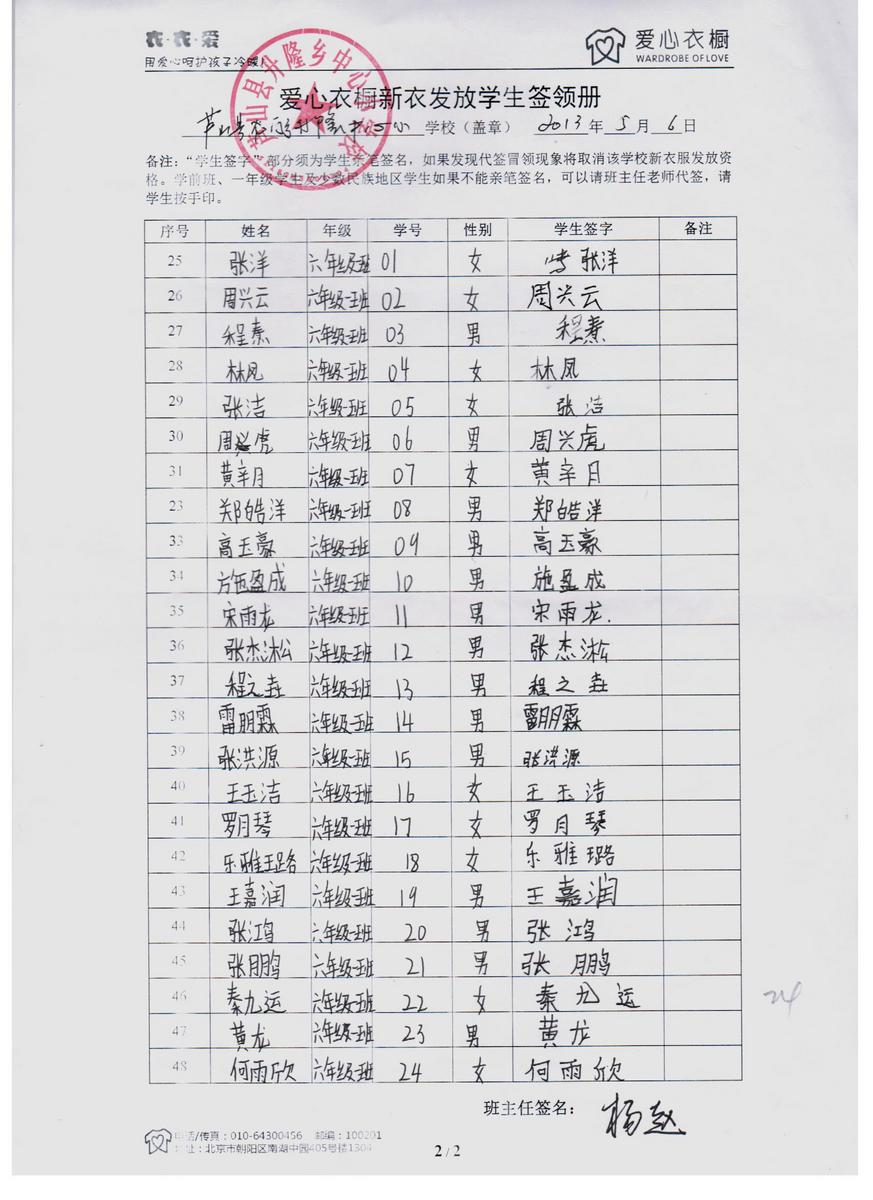 衣·衣·爱
用爱心呵护孩子冷暖!
爱心衣橱
WARDROBE OF LOVE
爱心衣橱新衣发放学生签领册
学校（盖章） 2013年5月6日
备注：“学生签字”部分须为学生亲笔签名，如果发现代签冒领现象将取消该学校新衣服发放资
格。学前班、一年级学生及少数民族地区学生如果不能亲笔签名，可以请班主任老师代签，请
学生按手印。
序号 姓名 年级 学号 性别 学生签字 备注
25 张洋 六年级一班 01 女 张洋
26 周兴云 六年级一班 02 女 周兴云
27 程蓁 六年级一班 03 男 程蓁
28 林凤 六年级一班 04 女 林凤
29 张洁 六年级一班 05 女 张洁
30 周兴虎 六年级一班 06 男 周兴虎
31 黄辛月 六年级一班 07 女 黄辛月
23 郑皓洋 六年级一班 08 男 郑皓洋
33 高玉豪 六年级一班 09 男 高玉豪
34 施盈成 六年级一班 10 男 施盈成
35 宋雨龙 六年级一班 11 男 宋雨龙.
36 张杰淞 六年级一班 12 男 张杰淞
37 程之垚 六年级一班 13 男 程之垚
38 雷朋霖 六年级一班 14 男 雷朋霖
39 张洪源 六年级一班 15 男 张洪源
40 王玉洁 六年级一班 16 女 王玉洁
41 罗月琴 六年级一班 17 女 罗月琴
42 乐雅璐 六年级一班 18 女 乐雅璐
43 王嘉润 六年级一班 19 男 王嘉润
44 张鸿 六年级一班 20 男 张鸿
45 张鹏 六年级一班 21 男 张鹏
46 秦九运 六年级一班 22 女 秦九运
47 黄龙 六年级一班 23 男 黄龙
48 何雨欣 六年级一班 24 女 何雨欣
24
班主任签名： 杨赵
电话/传真：010-64300456 邮编：100201
地址：北京市朝阳区南湖中园405号楼1304
2 / 2